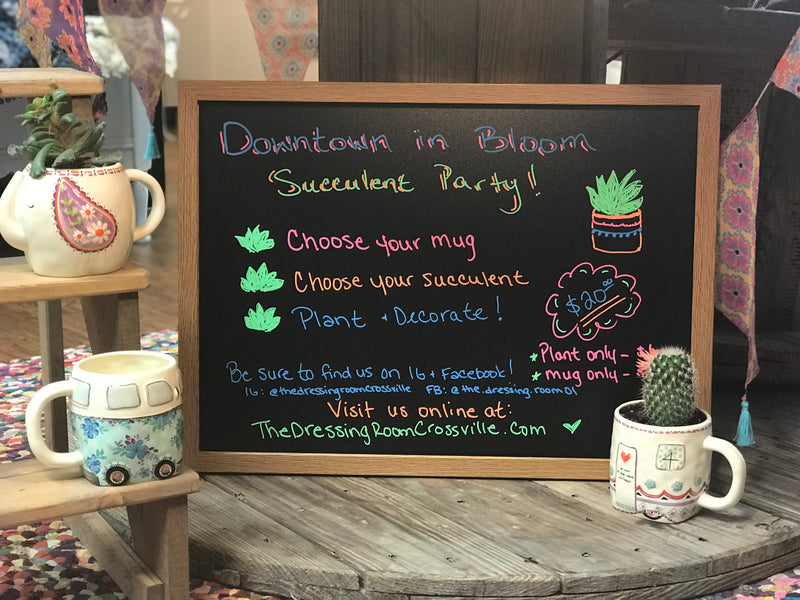 Downtown in Bloom
Succulent Party!
Choose your mug
Choose your succulent
Plant + Decorate!
$20.00
*Plant only -
*mug only -
Be sure to find us on IG + Facebook!
IG: @thedressingroomcrossville FB: @the.dressing.room01
Visit us online at:
TheDressingRoomCrossville.com